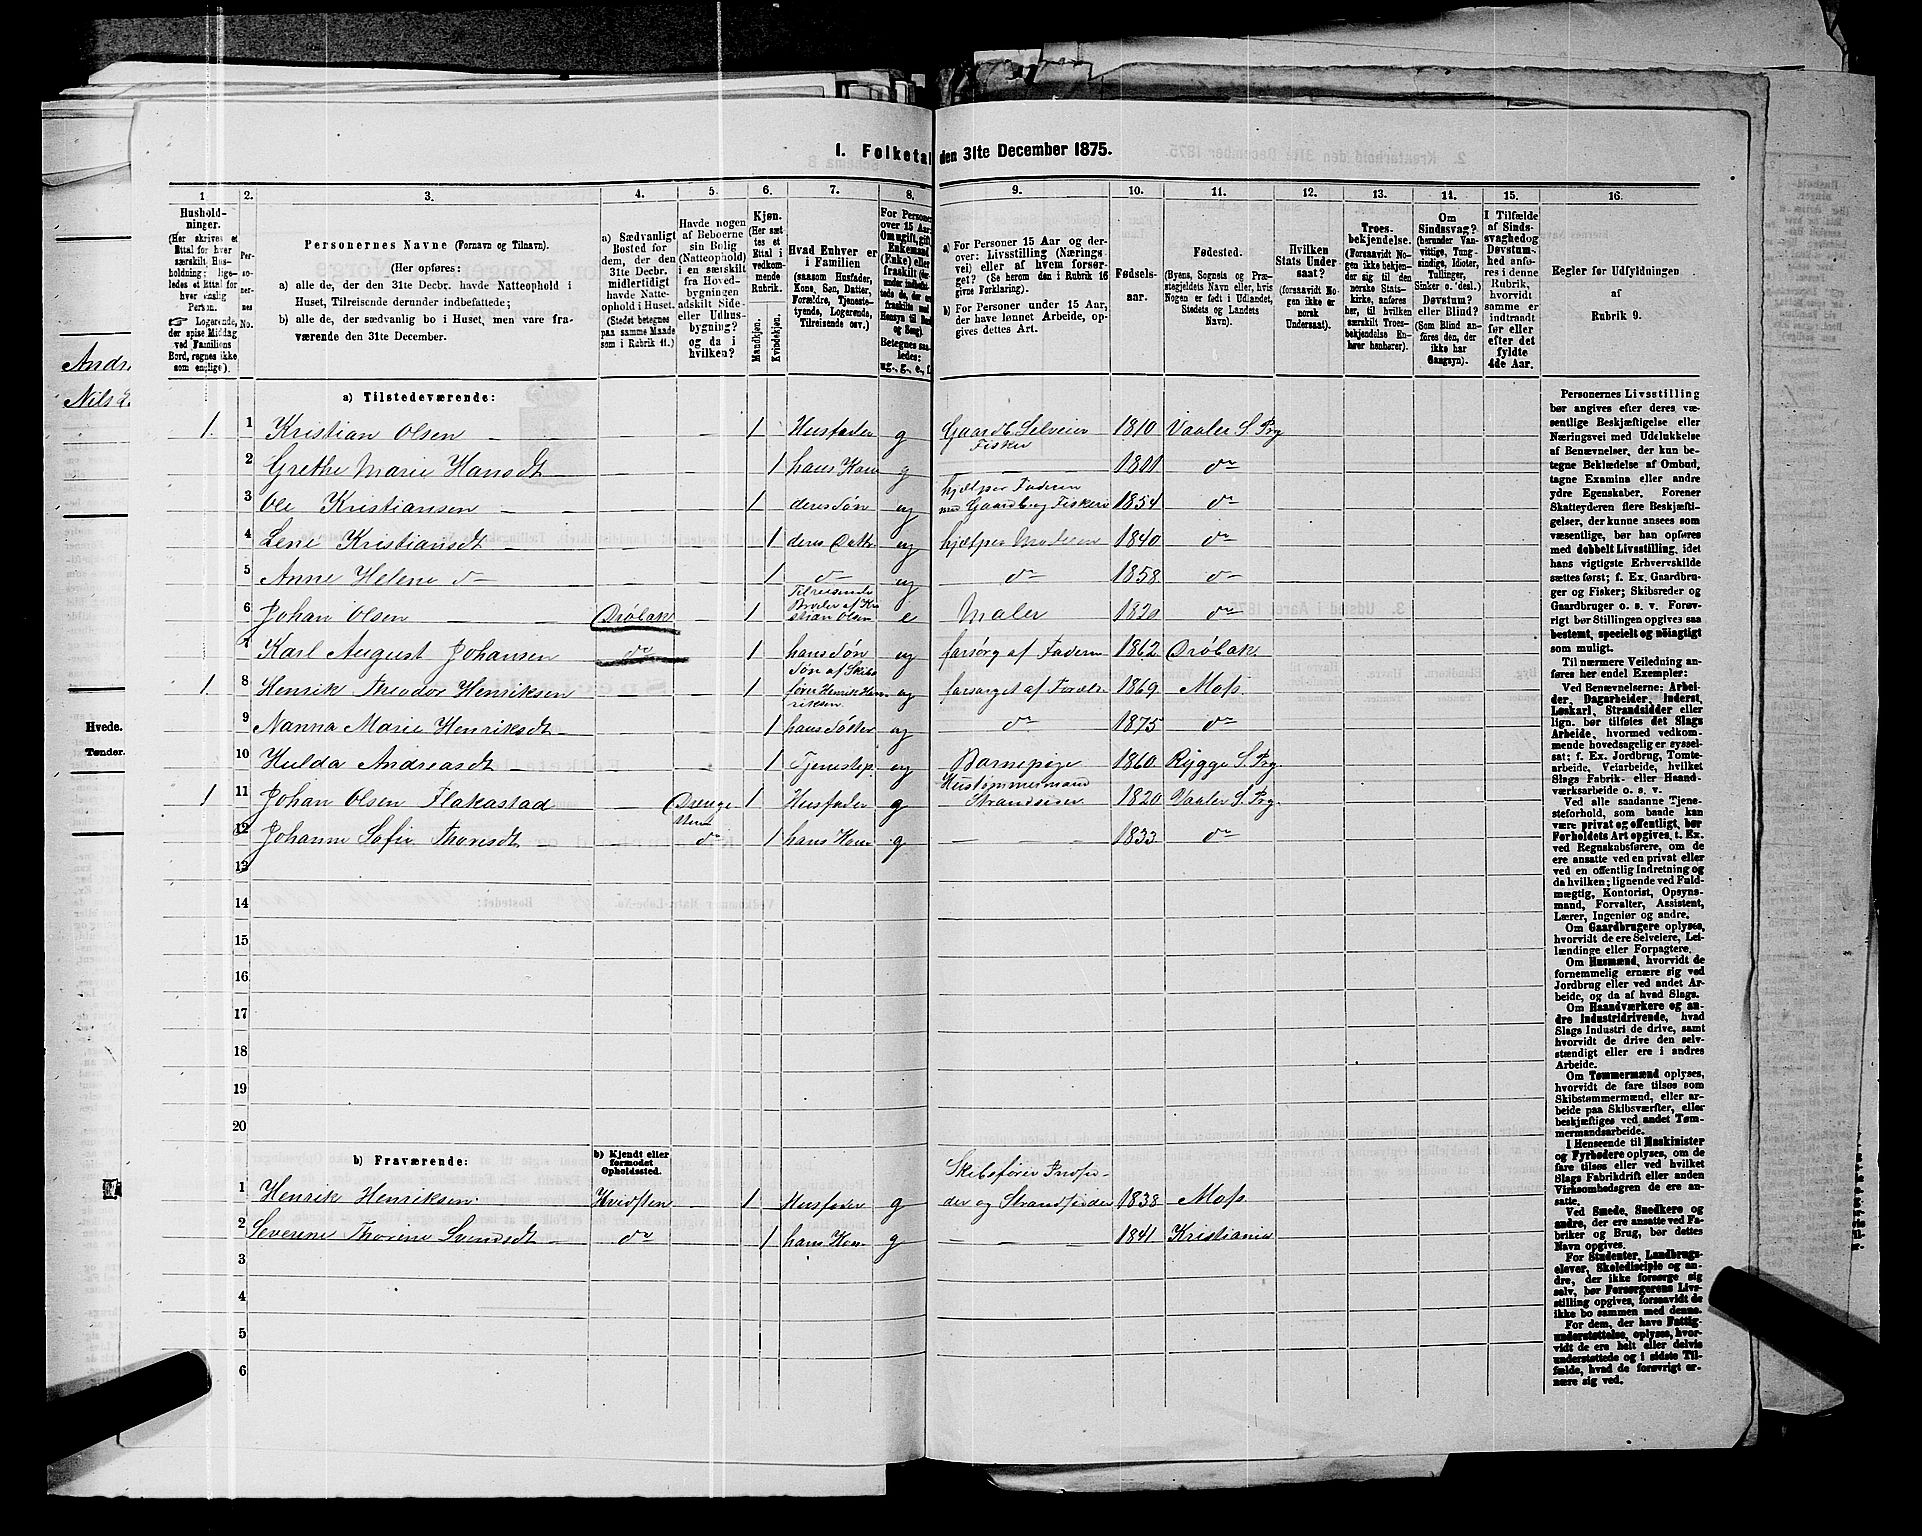 I. Folketal den 31te December 1875.
1 2. 3. 4. 5. 6. 7. 8. 9. 10. 11. 12. 13. 14. 15. 16.
Hushold-
ninger.
(Her skrives et
Ettal for hver
særskilt Hus-
holdning; lige-
ledes et Ettal for
hver enslig
Person.
☞ Logerende,
der spise Middag
ved Familiens
Bord, regnes ikke
som enslige).
Per-
so-
ner-
nes
No.
Personernes Navne (Fornavn og Tilnavn).
(Her opføres:
a) alle de, der den 31te Decbr. havde Natteophold i
Huset, Tilreisende derunder indbefattede;
b) alle de, der sædvanlig bo i Huset, men vare fra-
værende den 31te December.
a) Sædvanligt
Bosted for
dem, der den
31te Decbr.
midlertidigt
havde Natte-
ophold i Huset.
(Stedet betegnes
paa samme Maade
som i Rubrik 11.)
Havde nogen
af Beboerne
sin Bolig
(Natteophold)
i en særskilt
fra Hoved-
bygningen
adskilt Side-
eller Udhus-
bygning?
og da i
hvilken?
Kjøn.
(Her sæt-
tes et
Ettal i
vedkom-
mende
Rubrik.
Mandkjøn.
Kvindekjøn.
Hvad Enhver er
i Familien
(saasom Husfader,
Kone, Søn, Datter,
Forældre, Tjeneste-
tyende, Logerende,
Tilreisende osv.)
For Personer
over 15 Aar:
Om ugift, gift,
Enkemand
(Enke) eller
fraskilt
a) For Personer 15 Aar og der-
over: Livsstilling (Nærings-
vei) eller af hvem forsør-
get? (Se herom den i Rubrik 16
givne Forklaring).
b) For Personer under 15 Aar,
der have lønnet Arbeide, op-
gives dettes Art.
Fødsels-
aar.
Fødested.
(Byens, Sognets og Præ-
stegjeldets Navn eller, hvis
Nogen er født i Udlandet,
Stedets og Landets
Navn).
Hvilken
Stats Under-
saat?
(forsaavidt No-
gen ikke er
norsk
Undersaat).
Troes-
bekjendelse.
(Forsaavidt No-
gen ikke bekjen-
der sig til den
norske Stats-
kirke, anføres
her, til hvilken
særskilt Troes-
bekjendelse En-
hver henhører).
Om
Sindssvag?
(herunder Van-
vittige, Tung-
sindige, Idioter,
Tullinger,
Sinker o. desl.)
Døvstum?
eller Blind?
(Som Blind an-
føres den, der
ikke har
Gangsyn).
I Tilfælde
af Sinds-
svaghed og
Døvstum-
hed anfø-
res i denne
Rubrik,
hvorvidt
samme er
indtraadt
før eller
efter det
fyldte
4de Aar.
Regler for Udfyldningen
af
Rubrik 9.
a) Tilstedeværende:
1. 1 Kristian Olsen — — 1 Husfader g Gaardb. Selveier Fisker 1810 Vaaler S. Prg
2 Grethe Marie Hansdt — — 1 hans Kone g — 1801 do
3 Ole Kristiansen — — 1 deres Søn ug hjælper Faderen med Gaardb. og Fiskeri 1854 do
4 Lene Kristiansdt — — 1 deres Dattr ug hjælper Moderen 1840 do
5 Anne Helene do — — 1 do ug do 1858 do
6 Johan Olsen — Drøbak — 1 Tilreisende Broder af Kristian Olsen e Maler 1820 do
7 Karl August Johansen do — 1 hans Søn ug forsørg af Faderen 1862 Drøbak
1 8 Henrik Theodor Henriksen — — 1 Søn af Skibsfører Henrik Henriksen ug forsørget af Foræld 1869 Moss
9 Nanna Marie Henriksdt — — 1 hans Datter ug do 1875 do
10 Hulda Andreasdt — — 1 Tjenestep. ug Barnepige 1860 Rygge S. Prg
1 11 Johan Olsen Flakastad — 1 Husfader g Hustømmermand Strandsidder 1820 Vaaler S. Prg.
12 Johanne Sofie Thoresdt — do 1 hans Kone g — 1833 do
13
14
15
16
17
18
19
20
b) Fraværende:
b) Kjendt eller
formodet
Opholdssted.
1 Henrik Henriksen. Hvidsten 1 Husfader g Skibsfører og Strandsidder 1838 Moss
2 Severine Thorine Svendsdt — do 1 hans Kone g — 1841 Kristiania
3
4
5
6
Personernes Livsstilling
bør angives efter deres væ-
sentlige Beskjæftigelse eller
Næringsvei med Udelukkelse
af Benævnelser, der kun be-
tegne Beklædelse af Ombud,
tagne Examina eller andre
ydre Egenskaber. Forener
Skatteyderen flere Beskjæfti-
gelser, der kunne ansees som
væsentlige, bør han opføres
med dobbelt Livsstilling, idet
hans vigtigste Erhvervskilde
sættes først; f. Ex. Gaardbru-
ger og Fisker; Skibsreder og
Gaardbruger o. s. v. Forøv-
rigt bør Stillingen opgives saa
bestemt, specielt og nøiagtigt
som muligt.
Til nærmere Veiledning an-
føres her endel Exempler:
Ved Benævnelserne: Arbei-
der, Dagarbeider, Inderst,
Løskarl, Strandsidder eller
lign. bør tilføies det Slags
Arbeide, hvormed vedkom-
mende hovedsagelig er syssel-
sat; f. Ex. Jordbrug, Tomte-
arbeide, Veiarbeide, hvilket
Slags Fabrik- eller Haand-
værksarbeide o. s. v.
Ved alle saadanne Tjene-
steforhold, som baade kan
være privat og offentligt, bør
Forholdets Art opgives, t. Ex.
ved Regnskabsførere, om de
ere ansatte ved en privat eller
ved en offentlig Indretning og
da hvilken; lignende ved Fuld-
mægtig, Kontorist, Opsyns-
mand, Forvalter, Assistent,
Lærer, Ingeniør og andre.
Om Gaardbrugere oplyses,
hvorvidt de ere Selveiere, Lei-
lændinge eller Forpagtere.
Om Husmænd, hvorvidt de
fornemmelig ernære sig ved
Jordbrug eller ved andet Ar-
beide, og da af hvad Slags.
Om Haandværkere og an-
dre Industridrivende, hvad
Slags Industri de drive, samt
hvorvidt de drive den selv-
stændigt eller ere i andres
Arbeide.
Om Tømmermænd oplyses,
hvorvidt de fare tilsøs som
Skibstømmermænd, eller ar-
beide paa Skibsværfter, eller
beskjæftiges ved andet Tøm-
mermandsarbeide.
I Henseende til Maskinister
og Fyrbødere oplyses, om de
fare tilsøs eller ved hvilket
Slags Fabrikdrift eller anden
Virksomhedsgren de ere an-
satte.
Ved Smede, Snedkere og
andre, der ere ansatte ved Fa-
briker og Brug, bør dettes
Navn opgives.
For Studenter, Landbrugs-
elever, Skoledisciple og an-
dre, der ikke forsørge sig
selv, bør Forsørgerens Livs-
stilling opgives, forsaavidt de
ikke bo sammen med denne.
For dem, der have Fattig-
understøttelse, oplyses, hvor-
vidt de ere helt eller delvis
understøttede og i sidste Til-
fælde, hvad de forøvrigt er-
nære sig ved.
Hvede.
Tønder.